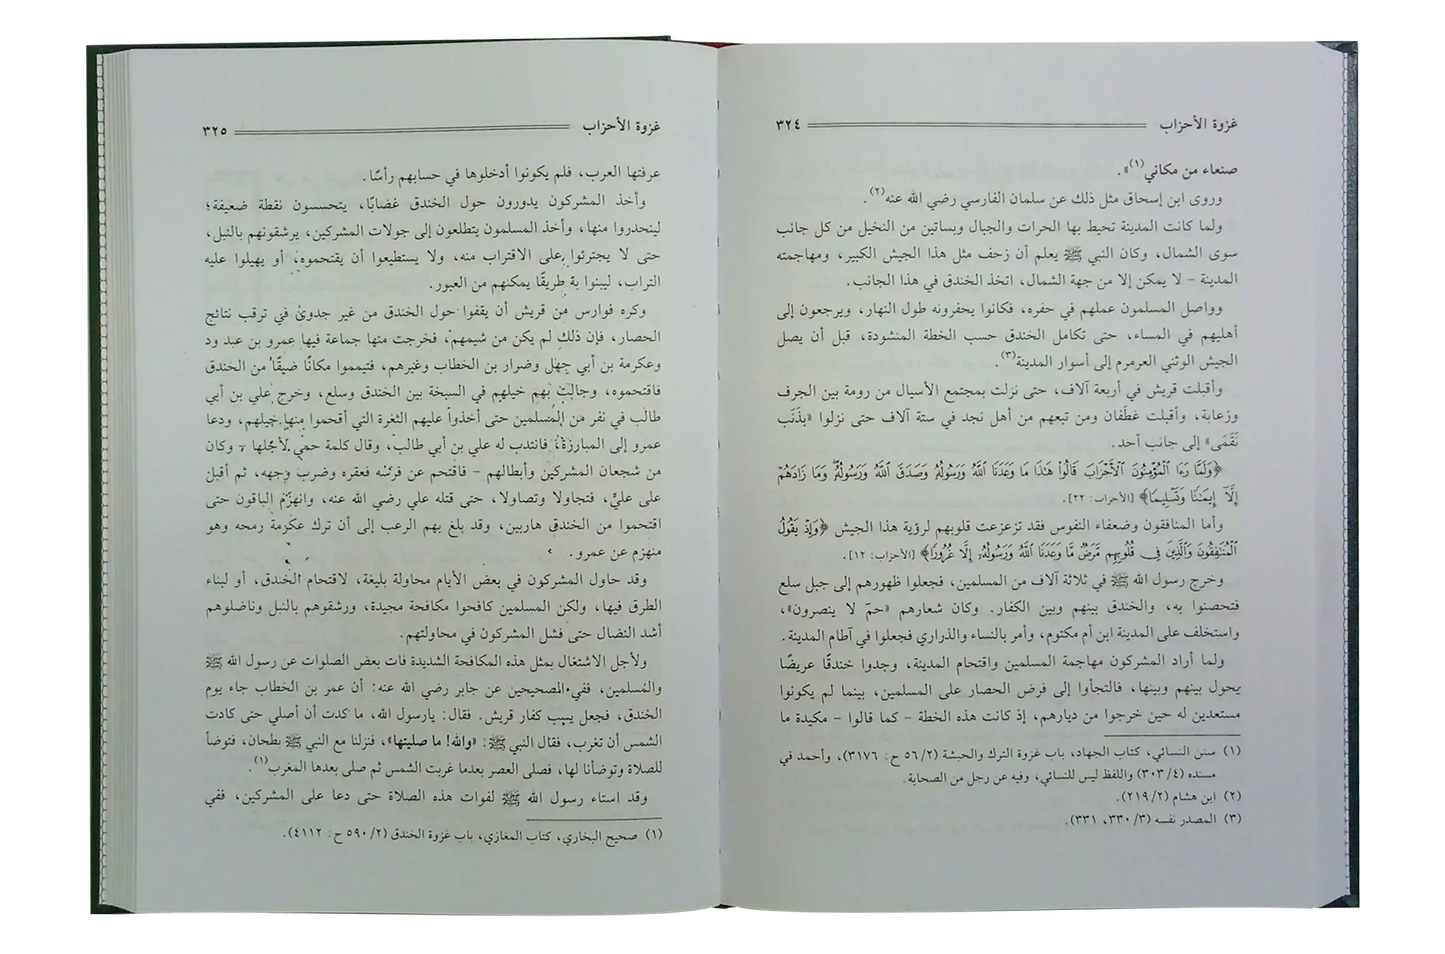 غزوة الأحزاب ٣٢٤
صنعاء من مكاني(١)».
وروى ابن إسحاق مثل ذلك عن سلمان الفارسي رضي الله عنه(٢).
ولما كانت المدينة تحيط بها الحرات والجبال وبساتين من النخيل من كل جانب
سوى الشمال، وكان النبي ﷺ يعلم أن زحف مثل هذا الجيش الكبير، ومهاجمته
المدينة – لا يمكن إلا من جهة الشمال، اتخذ الخندق في هذا الجانب.
وواصل المسلمون عملهم في حفره، فكانوا يحفرونه طول النهار، ويرجعون إلى
أهليهم في المساء، حتى تكامل الخندق حسب الخطة المنشودة، قبل أن يصل
الجيش الوثني العرمرم إلى أسوار المدينة(٣).
وأقبلت قريش في أربعة آلاف، حتى نزلت بمجتمع الأسيال من رومة بين الجرف
وزعابة، وأقبلت غطَفان ومن تبعهم من أهل نجد في ستة آلاف حتى نزلوا «بذَنَب
نَقَمَى» إلى جانب أحد.
﴿وَلَمَّا رَءَا ٱلْمُؤْمِنُونَ ٱلْأَحْزَابَ قَالُوا۟ هَٰذَا مَا وَعَدَنَا ٱللَّهُ وَرَسُولُهُۥ وَصَدَقَ ٱللَّهُ وَرَسُولُهُۥ ۚ وَمَا زَادَهُمْ
إِلَّآ إِيمَٰنًا وَتَسْلِيمًا﴾ [الأحزاب: ٢٢].
وأما المنافقون وضعفاء النفوس فقد تزعزعت قلوبهم لرؤية هذا الجيش ﴿وَإِذْ يَقُولُ
ٱلْمُنَٰفِقُونَ وَٱلَّذِينَ فِى قُلُوبِهِم مَّرَضٌ مَّا وَعَدَنَا ٱللَّهُ وَرَسُولُهُۥٓ إِلَّا غُرُورًا﴾ [الأحزاب: ١٢].
وخرج رسول الله ﷺ في ثلاثة آلاف من المسلمين، فجعلوا ظهورهم إلى جبل سلع
فتحصنوا به، والخندق بينهم وبين الكفار. وكان شعارهم «حمّ لا ينصرون»،
واستخلف على المدينة ابن أم مكتوم، وأمر بالنساء والذراري فجعلوا في آطام المدينة.
ولما أراد المشركون مهاجمة المسلمين واقتحام المدينة، وجدوا خندقًا عريضًا
يحول بينهم وبينها، فالتجأوا إلى فرض الحصار على المسلمين، بينما لم يكونوا
مستعدين له حين خرجوا من ديارهم، إذ كانت هذه الخطة – كما قالوا – مكيدة ما
(١) سنن النسائي، كتاب الجهاد، باب غزوة الترك والحبشة (٢/ ٥٦ ح: ٣١٧٦)، وأحمد في
مسنده (٤/ ٣٠٣) واللفظ ليس للنسائي، وفيه عن رجل من الصحابة.
(٢) ابن هشام (٢/ ٢١٩).
(٣) المصدر نفسه (٣/ ٣٣٠، ٣٣١).
غزوة الأحزاب ٣٢٥
عرفتها العرب، فلم يكونوا أدخلوها في حسابهم رأسًا.
وأخذ المشركون يدورون حول الخندق غضابًا، يتحسسون نقطة ضعيفة؛
لينحدروا منها، وأخذ المسلمون يتطلعون إلى جولات المشركين، يرشقونهم بالنبل،
حتى لا يجترئوا على الاقتراب منه، ولا يستطيعوا أن يقتحموه، أو يهيلوا عليه
التراب، ليبنوا به طريقًا يمكنهم من العبور.
وكره فوارس من قريش أن يقفوا حول الخندق من غير جدوىٰ في ترقب نتائج
الحصار، فإن ذلك لم يكن من شيمهم، فخرجت منها جماعة فيها عمرو بن عبد ود
وعكرمة بن أبي جهل وضرار بن الخطاب وغيرهم، فتيمموا مكانًا ضيقًا من الخندق
فاقتحموه، وجالت بهم خيلهم في السبخة بين الخندق وسلع، وخرج علي بن أبي
طالب في نفر من المسلمين حتى أخذوا عليهم الثغرة التي أقحموا منها خيلهم، ودعا
عمرو إلى المبارزة، فانتدب له علي بن أبي طالب، وقال كلمة حمي لأجلها – وكان
من شجعان المشركين وأبطالهم – فاقتحم عن فرسه فعقره وضرب وجهه، ثم أقبل
على عليّ، فتجاولا وتصاولا، حتى قتله علي رضي الله عنه، وانهزم الباقون حتى
اقتحموا من الخندق هاربين، وقد بلغ بهم الرعب إلى أن ترك عكرمة رمحه وهو
منهزم عن عمرو.
وقد حاول المشركون في بعض الأيام محاولة بليغة، لاقتحام الخندق، أو لبناء
الطرق فيها، ولكن المسلمين كافحوا مكافحة مجيدة، ورشقوهم بالنبل وناضلوهم
أشد النضال حتى فشل المشركون في محاولتهم.
ولأجل الاشتغال بمثل هذه المكافحة الشديدة فات بعض الصلوات عن رسول الله ﷺ
والمسلمين، ففي الصحيحين عن جابر رضي الله عنه: أن عمر بن الخطاب جاء يوم
الخندق، فجعل يسب كفار قريش. فقال: يارسول الله، ما كدت أن أصلي حتى كادت
الشمس أن تغرب، فقال النبي ﷺ: «والله! ما صليتها»، فنزلنا مع النبي ﷺ بطحان، فتوضأ
للصلاة وتوضأنا لها، فصلى العصر بعدما غربت الشمس ثم صلى بعدها المغرب(١).
وقد استاء رسول الله ﷺ لفوات هذه الصلاة حتى دعا على المشركين، ففي
(١) صحيح البخاري، كتاب المغازي، باب غزوة الخندق (٢/ ٥٩٠ ح: ٤١١٢).